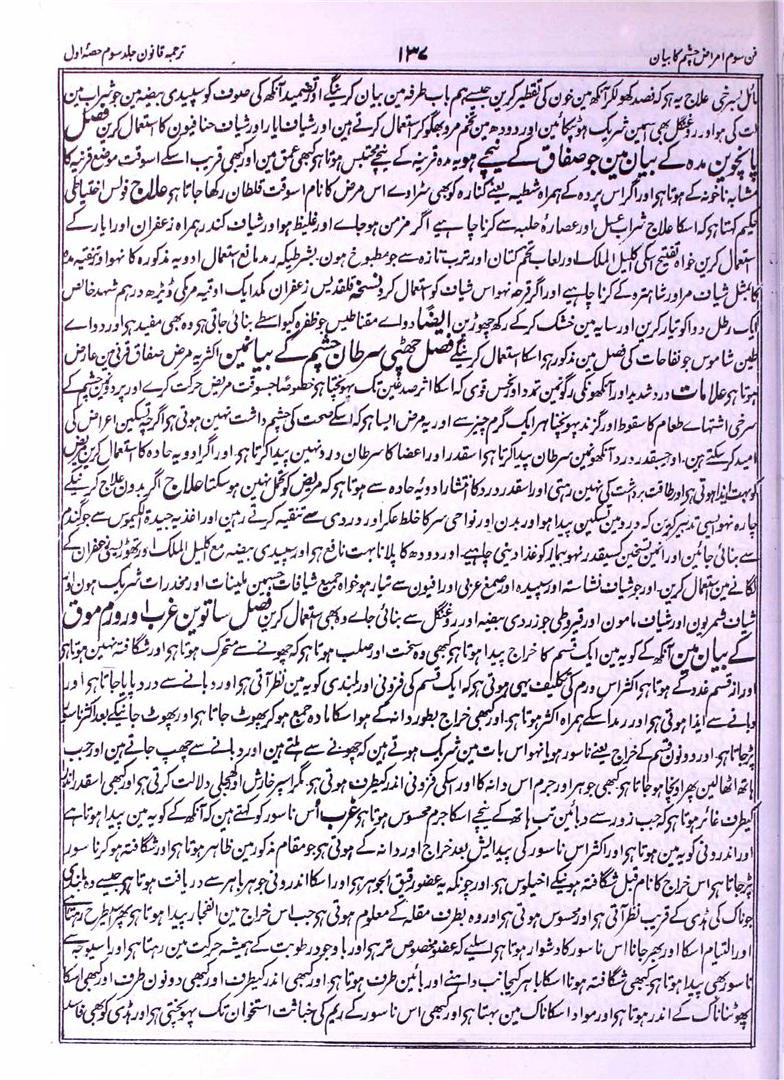 فن سوم امراض چشم کا بیان ۱۳۷ ترجمہ قانون جلد سوم حصۂ اول
مائل بسرخی علاج یہ ہی کہ فصد کھولکر آنکھ مین خون کی تقطیر کرین جیسے ہم باب طرفہ مین بیان کرینگے اور تضمید آنکھ کی صوف کو سپیدی بیضہ مین جو شراب مین
ات کی ہو اور روغنگل بھی سمین شریک ہو ٹپکائین اور دودھ مین تخم مرو بھگو کر استعمال کرتے ہین اور شیاف ایار اور شیاف حنافیون کا استعمال کرین فصل
پانچوین مدہ کے بیان مین جو صفاق کے نیچے ہو یہ مدہ قرنیہ کے نیچے محتبس ہوتا ہی کبھی عمق مین اور کبھی قریب اسکے اسوقت موضع قرنیہ کا
مشابہ ناخونہ کے ہوتا ہی اور اگر اس پردہ کے ہمراہ شطیہ یعنے کنارہ کو بھی سڑاوے اس مرض کا نام اسوقت قلطان رکھا جاتا ہی علاج فولس اختیاطی
حکیم کہتا ہی کہ اسکا علاج شراب عسل اور عصارہ حلبہ سے کرنا چاہیے اگر مزمن ہو جاے اور غلیظ ہو اور شیاف کندر ہمراہ زعفران اور ابار کے
استعمال کرین خواہ تفتیح اسکی کلیل الملک اور لعاب تخم کتان اور ترب تازہ سے جو مطبوخ ہون بشرطیکہ رمد مانع استعمال ادویہ مذکورہ کا نہو اور تنقیہ مدہ
کا بمثل شیاف مر اور شاہترہ کے کرنا چاہیے اور اگر قرحہ نہو اس شیاف کو استعمال کرو نسخہ قلقدیس زعفران کمد ایک اوقیہ مر کی ڈیڑھ درہم شہد خالص
ایک رطل دوا کو تیار کرین اور سایہ مین خشک کر کے رکھ چھوڑین ایضا دواے مقناطیس جو ظفرہ کیواسطے بنائی جاتی ہی وہ بھی مفید ہی اور دواے
طین شاموس جو نفاخات کی فصل مین مذکور ہی اسکا استعمال کرینگے فصل چھٹی سرطان چشم کے بیان مین اکثر یہ مرض صفاق قرنی مین عارض
ہوتا ہی علامات درد شدید اور آنکھ کی رگونمین تمدد اور نخس قوی کہ اسکا اثر صدغین تک پہونچتا ہی خصوصا جسوقت مریض حرکت کرے اور پردونمین چشم کے
سرخی اشتہاے طعام کا سقوط اور گزند پہونچنا ہر ایک گرم چیز سے اور یہ مرض ایسا ہی کہ اسکے صحت کی چشم داشت نہین ہوتی ہی اگرچہ تسکین اعراض کی
امید کر سکتے ہین۔ اور جسقدر درد آنکھونمین سرطان پیدا کرتا ہی اسقدر اور اعضا کا سرطان درد نہین پیدا کرتا ہی۔ اور اگر ادویہ حادہ کا استعمال کرین مریض
کو بہت ایذا ہوتی ہی اور طاقت برداشت کی نہین رہتی اور اسقدر درد کا انتشار ادویہ حادہ سے ہوتا ہی کہ مریض کو تحمل نہین ہو سکتا علاج اگر بدون علاج کرنیکے
چارہ نہو ایسی تدبیر کرین کہ درد مین تسکین پیدا ہو اور بدن اور نواحی سر کا خلط عکر اور دردی سے تنقیہ کرتے رہین اور اغذیہ جیدۃ الکیموس سے جو گندم
سے بنائی جائین اور انمین تسخین کسیقدر نہو بیمار کو غذا دینی چاہیے۔ اور دودھ کا پلانا بہت نافع ہی اور سپیدی بیضہ مع کلیل الملک اور تھوڑیسی زعفران کے
لگانے مین استعمال کرین۔ اور جو شیاف نشاستہ اور سپیدہ اور صمغ عربی اور افیون سے تیار ہو خواہ جمیع شیافات جنمین ملینات اور مخدرات شریک ہون اور
شیاف شمریون اور شیاف مامون اور قیروطی جو زردی بیضہ اور روغنگل سے بنائی جاے وہ بھی استعمال کرین فصل ساتوین غرب اور ورم موق
کے بیان مین آنکھ کے کویہ مین ایک قسم کا خراج پیدا ہوتا ہی کبھی وہ سخت اور صلب ہوتا ہی کہ چھونے سے متحرک ہوتا ہی اور شگافتہ نہین ہوتا ہی
اور از قسم غدد کے ہوتا ہی اکثر اس ورم کی تکلیف یہی ہوتی ہی کہ ایک قسم کی فزونی اور بلندی کویہ مین نظر آتی ہی اور دبانے سے درد پایا جاتا ہی اور
دبانے سے ایذا ہوتی ہی اور رمد اسکے ہمراہ اکثر ہوتا ہی۔ اور کبھی خراج بطور دانہ کے ہوا سکا مادہ جمع ہو کر پھوٹ جاتا ہی اور پھوٹ جانیکے بعد اکثر ناسور
پڑ جاتا ہی۔ اور دونون قسم کے خراج یعنے ناسور ہو یا نہو اس بات مین شریک ہوتے ہین کہ چھونے سے ہلتے ہین اور دبانے سے چھپ جاتے ہین اور جب
ہاتھ اٹھا لین پھر اونچا ہو جاتا ہی کبھی جوہر اور جرم اس دانہ کا اور اسکی فزونی اندر کیطرف ہوتی ہی مگر اسپر خارش اور کھجلی دلالت کرتی ہی اور کبھی اسقدر اندر
کیطرف غائر ہوتا ہی کہ جب زور سے دبائین تب ہاتھ کے نیچے اسکا جرم محسوس ہوتا ہی غرب اُس ناسور کو کہتے ہین کہ آنکھ کے کویہ مین پیدا ہوتا ہے
اور اندرونی کویہ مین ہوتا ہی اور اکثر اس ناسور کی پیدایش بعد خراج اور دانہ کے ہوتی ہی جو مقام مذکور مین ظاہر ہوتا ہی اور شگافتہ ہو کر ناسور
پڑ جاتا ہی اس خراج کا نام قبل شگافتہ ہونیکے اخیلوس ہی اور چونکہ یہ عضو رقیق الجوہر ہی اور اسکا اندرونی جوہر باہر سے دریافت ہوتا ہی جیسے وہ بلندی
جو ناک کی ہڈی کے قریب نظر آتی ہی اور محسوس ہوتی ہی اور وہ بطرف مقلہ کے معلوم ہوتی ہی جب اس خراج مین انفجار پیدا ہوتا ہی پھر اسیطرح رہتا ہے
اور التیام اسکا اور بھر جانا اس ناسور کا دشوار ہوتا ہی اسلیے کہ عضو مخصوص تر ہی اور با وجود رطوبت کے ہمیشہ حرکت مین رہتا ہی اور اسیوجہ سے
ناسور بھی پیدا ہوتا ہی کبھی شگافتہ ہونا اسکا باہر کیجانب داہنے اور بائین طرف ہوتا ہی۔ اور کبھی اندر کیطرف اور کبھی دونون طرف اور کبھی اسکا
پھوٹنا ناک کے اندر ہوتا ہی اور مواد اسکا ناک مین بہتا ہی اور کبھی اس ناسور کے ریم کی خباثت استخوان تک پہونچتی ہی اور ہڈی کو بھی فاسد